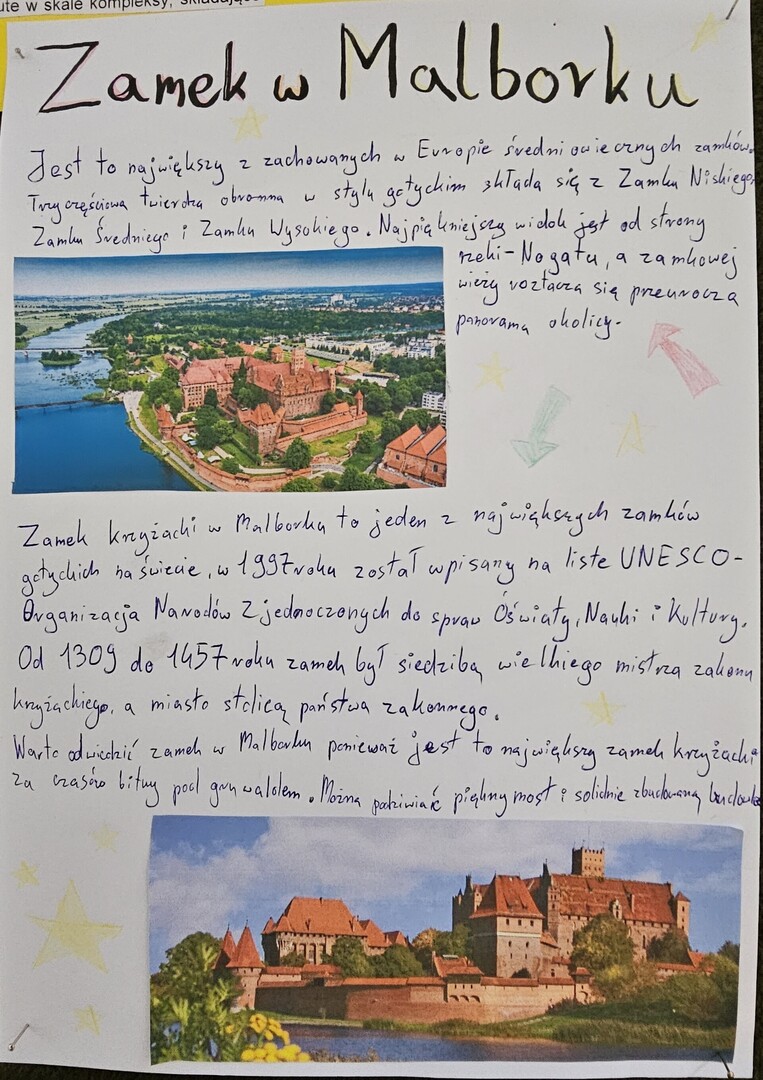 ute w skale kompleksy, składające
Zamek w Malborku
Jest to największy z zachowanych w Europie średniowiecznych zamków.
Trzyczęściowa twierdza obronna w stylu gotyckim składa się z Zamku Niskiego,
Zamku Średniego i Zamku Wysokiego. Najpiękniejszy widok jest od strony
rzeki-Nogatu, a zamkowej
wieży roztacza się przeurocza
panorama okolicy.
Zamek krzyżacki w Malborku to jeden z największych zamków
gotyckich na świecie, w 1997 roku został wpisany na liste UNESCO-
Organizacja Narodów Zjednoczonych do spraw Oświaty, Nauki i Kultury.
Od 1309 do 1457 roku zamek był siedzibą wielkiego mistrza zakonu
krzyżackiego, a miasto stolicą państwa zakonnego.
Warto odwiedzić zamek w Malborku ponieważ jest to największy zamek krzyżacki
za czasów bitwy pod grunwaldem. Można podziwiać piękny most i solidnie zbudowaną budowlę